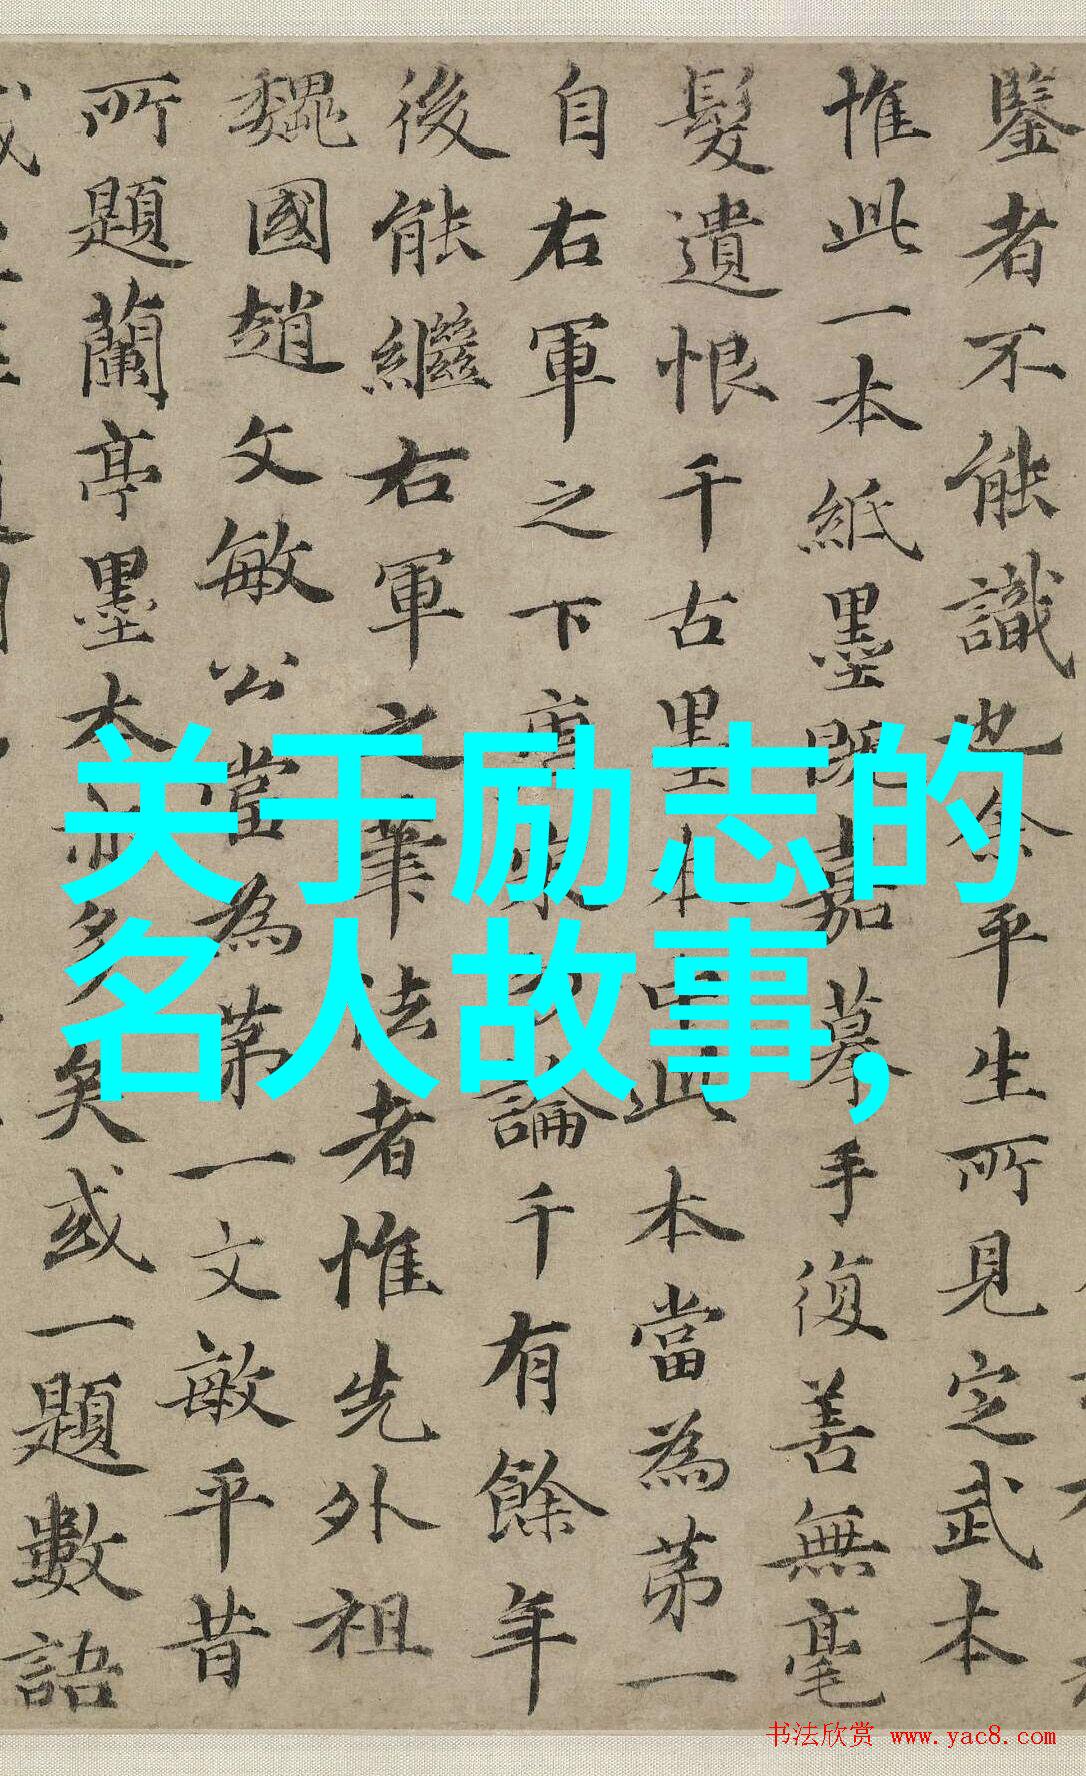 鑒者不能識也余平生所見定武本
惟此一本紙墨既嘉摹手復善無毫
髮遺恨千古墨本中此本當為第一
自右軍之下唐宋論千有餘年
後能繼右軍之筆法者惟先外祖
魏國趙文敏公當為第一文敏平昔
所題蘭亭墨本亦多矣或一題數語
关于励志的
名人故事,
书法欣赏 www.yac8.com